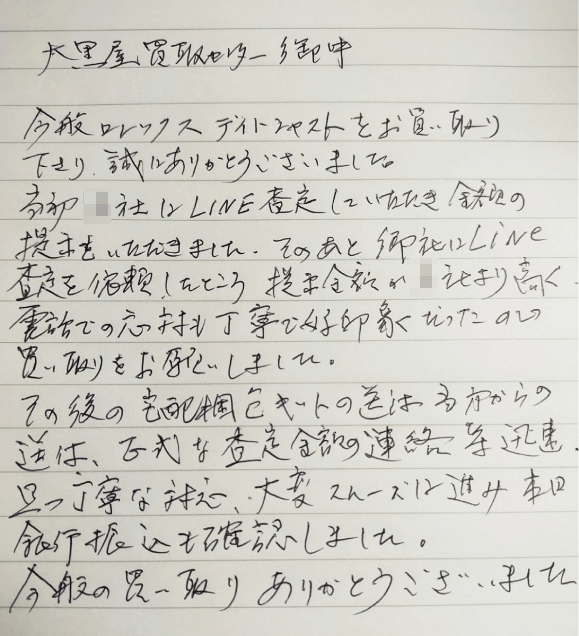 大黒屋買取センター御中
今般ロレックスデイトジャストをお買い取り
下さり、誠にありがとうございました。
当初 社にLINE査定していただき金額の
提示をいただきました。そのあと御社にLine
査定を依頼したところ提示金額が 社より高く、
電話での応対も丁寧で好印象だったので
買い取りをお願いしました。
その後の宅配梱包キットの送付、当方からの
送付、正式な査定金額の連絡等迅速、
且つ丁寧な対応、大変スムーズに進み本日
銀行振込も確認しました。
今般の買い取りありがとうございました